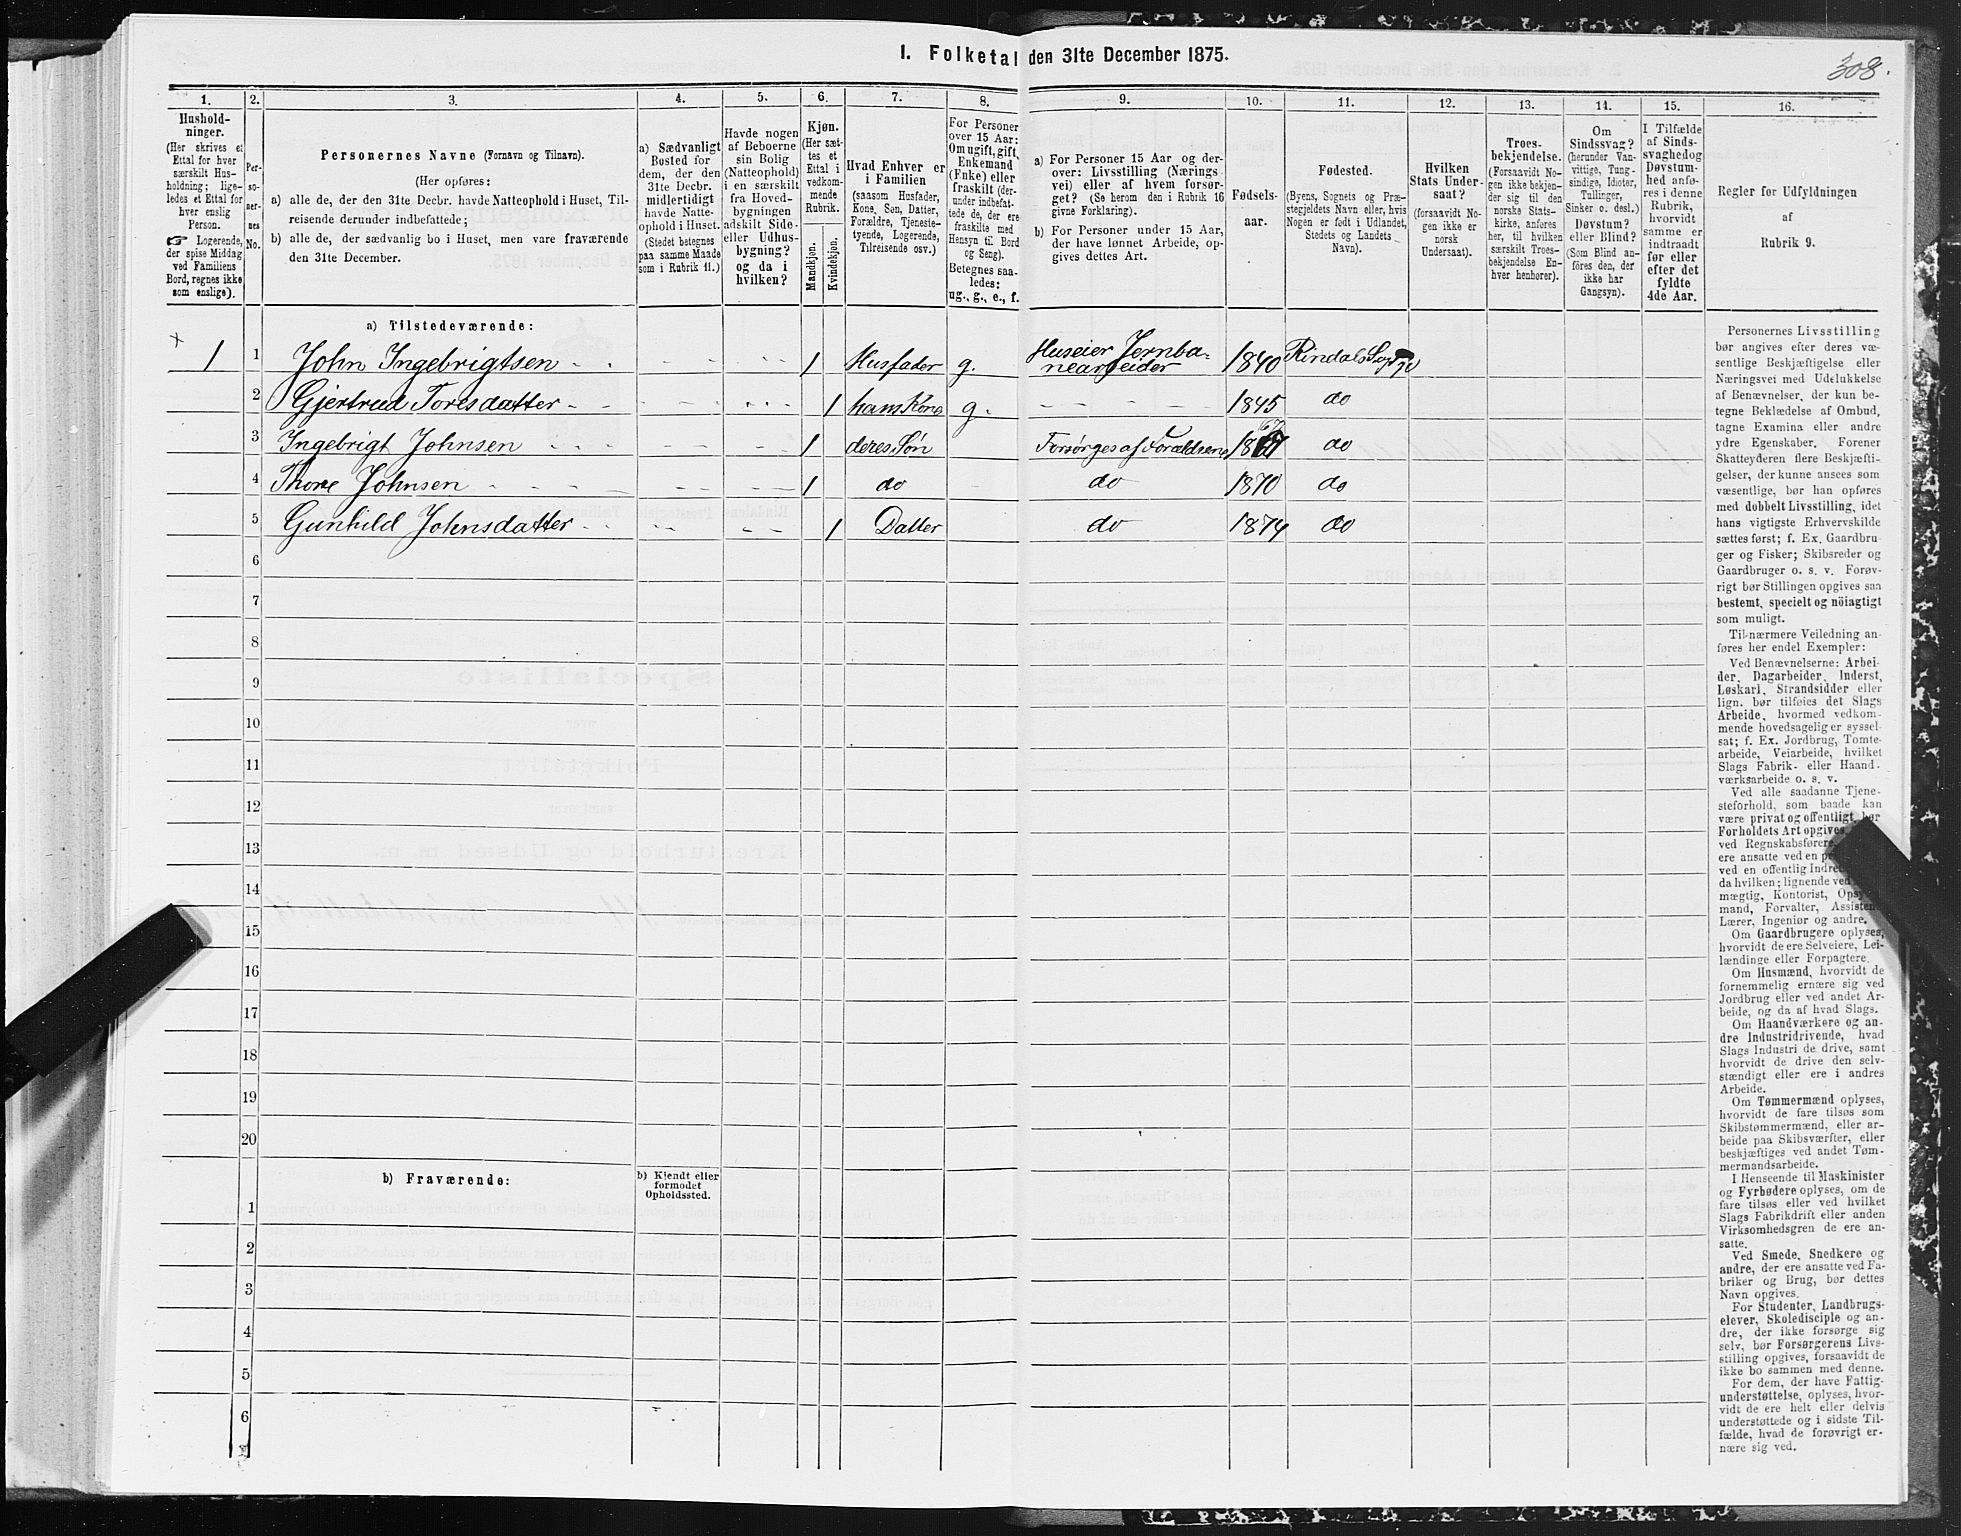 308.
I. Folketal den 31te December 1875.
1. 2. 3. 4. 5. 6. 7. 8. 9. 10. 11. 12. 13. 14. 15. 16.
Hushold-
ninger.
(Her skrives et
Ettal for hver
særskilt Hus-
holdning; lige-
ledes et Ettal for
hver enslig
Person.
☞ Logerende,
der spise Middag
ved Familiens
Bord, regnes ikke
som enslige).
Per-
so-
ner-
nes
No.
Personernes Navne (Fornavn og Tilnavn).
(Her opføres:
a) alle de, der den 31te Decbr. havde Natteophold i Huset, Til-
reisende derunder indbefattede;
b) alle de, der sædvanlig bo i Huset, men vare fraværende
den 31te December.
a) Sædvanligt
Bosted for
dem, der den
31te Decbr.
midlertidigt
havde Natte-
ophold i Huset.
(Stedet betegnes
paa samme Maade
som i Rubrik 11.)
Havde nogen
af Beboerne
sin Bolig
(Natteophold)
i en særskilt
fra Hoved-
bygningen
adskilt Side-
eller Udhus-
bygning?
og da i
hvilken?
Kjøn.
(Her sæt-
tes et
Ettal i
vedkom-
mende
Rubrik.
Mandkjøn.
Kvindekjøn.
Hvad Enhver er
i Familien
(saasom Husfader,
Kone, Søn, Datter,
Forældre, Tjeneste-
tyende, Logerende,
Tilreisende osv.)
For Personer
over 15 Aar:
Om ugift, gift,
Enkemand
(Enke) eller
fraskilt (der-
under indbefat-
tede de, der ere
fraskilte med
Hensyn til Bord
og Seng).
Betegnes saa-
ledes:
ug., g., e., f.
a) For Personer 15 Aar og der-
over: Livsstilling (Nærings-
vei) eller af hvem forsør-
get? (Se herom den i Rubrik 16
givne Forklaring).
b) For Personer under 15 Aar,
der have lønnet Arbeide, op-
gives dettes Art.
Fødsels-
aar.
Fødested.
(Byens, Sognets og Præ-
stegjeldets Navn eller, hvis
Nogen er født i Udlandet,
Stedets og Landets
Navn).
Hvilken
Stats Under-
saat?
(forsaavidt No-
gen ikke er
norsk
Undersaat).
Troes-
bekjendelse.
(Forsaavidt No-
gen ikke bekjen-
der sig til den
norske Stats-
kirke, anføres
her, til hvilken
særskilt Troes-
bekjendelse En-
hver henhører).
Om
Sindssvag?
(herunder Van-
vittige, Tung-
sindige, Idioter,
Tullinger,
Sinker o. desl.)
Døvstum?
eller Blind?
(Som Blind an-
føres den, der
ikke har
Gangsyn).
I Tilfælde
af Sinds-
svaghed og
Døvstum-
hed anfø-
res i denne
Rubrik,
hvorvidt
samme er
indtraadt
før eller
efter det
fyldte
4de Aar.
Regler for Udfyldningen
af
Rubrik 9.
a) Tilstedeværende:
1 1 John Ingebrigtsen 1 Husfader g. Huseier Jernba-
nearbeider 1840 Rindals Sogn
2 Gjertrud Toresdatter 1 hans Kone g. 1845 do
3 Ingebrigt Johnsen 1 deres Søn Forsørges af Forældrene 1867 do
4 Thore Johnsen 1 do do 1870 do
5 Gunhild Johnsdatter 1 Datter do 1874 do
6
7
8
9
10
11
12
13
14
15
16
17
18
19
20
b) Fraværende:
b) Kjendt eller
formodet
Opholdssted.
1
2
3
4
5
6
Personernes Livsstilling
bør angives efter deres væ-
sentlige Beskjæftigelse eller
Næringsvei med Udelukkelse
af Benævnelser, der kun be-
tegne Beklædelse af Ombud,
tagne Examina eller andre
ydre Egenskaber. Forener
Skatteyderen flere Beskjæfti-
gelser, der kunne ansees som
væsentlige, bør han opføres
med dobbelt Livsstilling, idet
hans vigtigste Erhvervskilde
sættes først; f. Ex. Gaardbru-
ger og Fisker; Skibsreder og
Gaardbruger o. s. v. Forøv-
rigt bør Stillingen opgives saa
bestemt, specielt og nöiagtigt
som muligt.
Til nærmere Veiledning an-
føres her endel Exempler:
Ved Benævnelserne: Arbei-
der, Dagarbeider, Inderst,
Løskarl, Strandsidder eller
lign. bør tilføies det Slags
Arbeide, hvormed vedkom-
mende hovedsagelig er syssel-
sat; f. Ex. Jordbrug, Tomte-
arbeide, Veiarbeide, hvilket
Slags Fabrik- eller Haand-
værksarbeide o. s. v.
Ved alle saadanne Tjene-
steforhold, som baade kan
være privat og offentligt, bør
Forholdets Art opgives,
ved Regnskabsførere,
ere ansatte ved en
ved en offentlig
da hvilken; lignende ved
mægtig, Kontorist,
mand, Forvalter,
Lærer, Ingeniør og andre.
Om Gaardbrugere oplyses,
hvorvidt de ere Selveiere, Lei-
lændinge eller Forpagtere.
Om Husmænd, hvorvidt de
fornemmelig ernære sig ved
Jordbrug eller ved andet Ar-
beide, og da af hvad Slags.
Om Haandværkere og an-
dre Industridrivende, hvad
Slags Industri de drive, samt
hvorvidt de drive den selv-
stændigt eller ere i andres
Arbeide.
Om Tømmermænd oplyses,
hvorvidt de fare tilsøs som
Skibstømmermænd, eller ar-
beide paa Skibsværfter, eller
beskjæftiges ved andet Tøm-
mermandsarbeide.
I Henseende til Maskinister
og Fyrbødere oplyses, om de
fare tilsøs eller ved hvilket
Slags Fabrikdrift eller anden
Virksomhedsgren de ere an-
satte.
Ved Smede, Snedkere og
andre, der ere ansatte ved Fa-
briker og Brug, bør dettes
Navn opgives.
For Studenter, Landbrugs-
elever, Skoledisciple og an-
dre, der ikke forsørge sig
selv, bør Forsørgerens Livs-
stilling opgives, forsaavidt de
ikke bo sammen med denne.
For dem, der have Fattig-
understøttelse, oplyses, hvor-
vidt de ere helt eller delvis
understøttede og i sidste Til-
fælde, hvad de forøvrigt er-
nære sig ved.